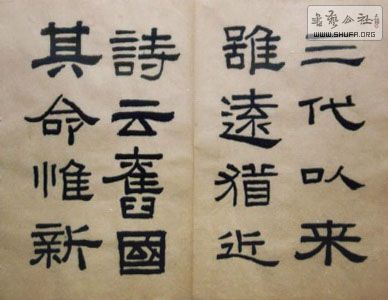 三代以来
雖遠猶近
詩云舊國
其命惟新
書藝公社
WWW.SHUFA.ORG